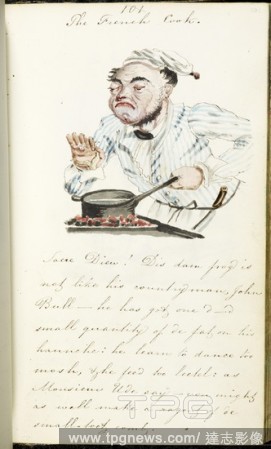 101.
The French Cook.
Sacre Dieu! Dis dam frog is
not like his countryman, John
Bull — he has got, one d—d
small quantity of de fat, on his
haunches: he learn to dance too
mosh, & he feed too little: as
Monsieur Ude say, you might
as well make a ragout de
small
TPG
www.tpgnews.com/達志影像